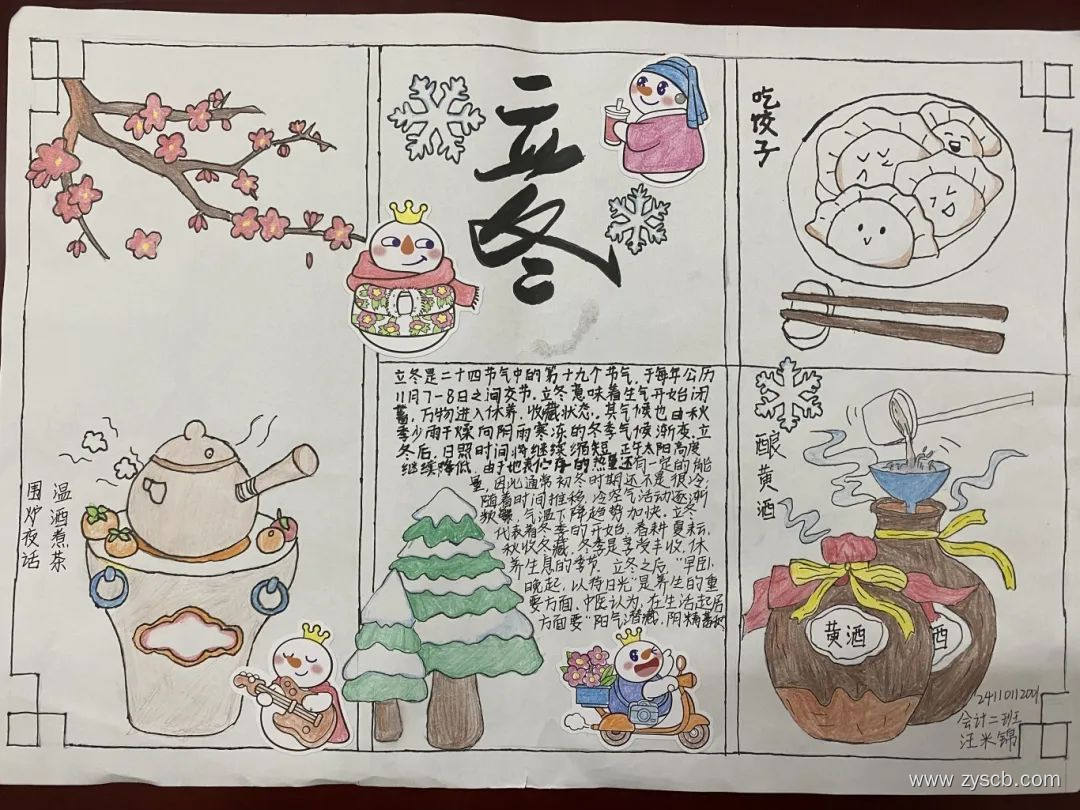 立冬
吃饺子
立冬是二十四节气中的第十九个节气,于每年公历
11月7-8日之间交节.立冬意味着生气开始闭
蓄,万物进入休养、收藏状态.其气候也由秋
季少雨干燥向阴雨寒冻的冬季气候渐变.立
冬后,日照时间将继续缩短,正午太阳高度
继续降低.由于地表
还有一定的能
量,因此通常初冬时期还不是很冷;
随着时间推移,冷空气活动逐渐
频繁,气温下降趋势加快.立冬
代表着冬季的开始.春耕夏耘,
秋收冬藏,冬季是享受丰收、休
养生息的季节.立冬之后,"早卧
晚起,以待日光"是养生的重
要方面,中医认为,在生活起居
方面要"阳气潜藏,阴精
温酒煮茶
围炉夜话
酿黄酒
黄酒
酒
2411011200
会计二班
汪米锦
www.zyscb.com